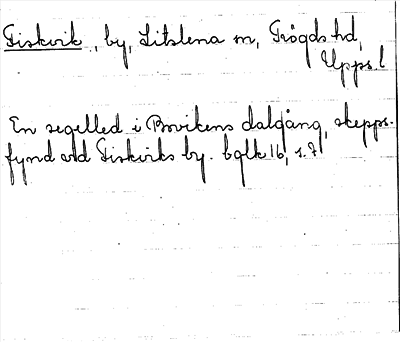 Fiskvik, by, Litslena sn, Trögds hd,
Upps. l
En segelled i Bovikens dalgång, skepps-
fynd vid Fiskviks by. bglk 16, s. 7